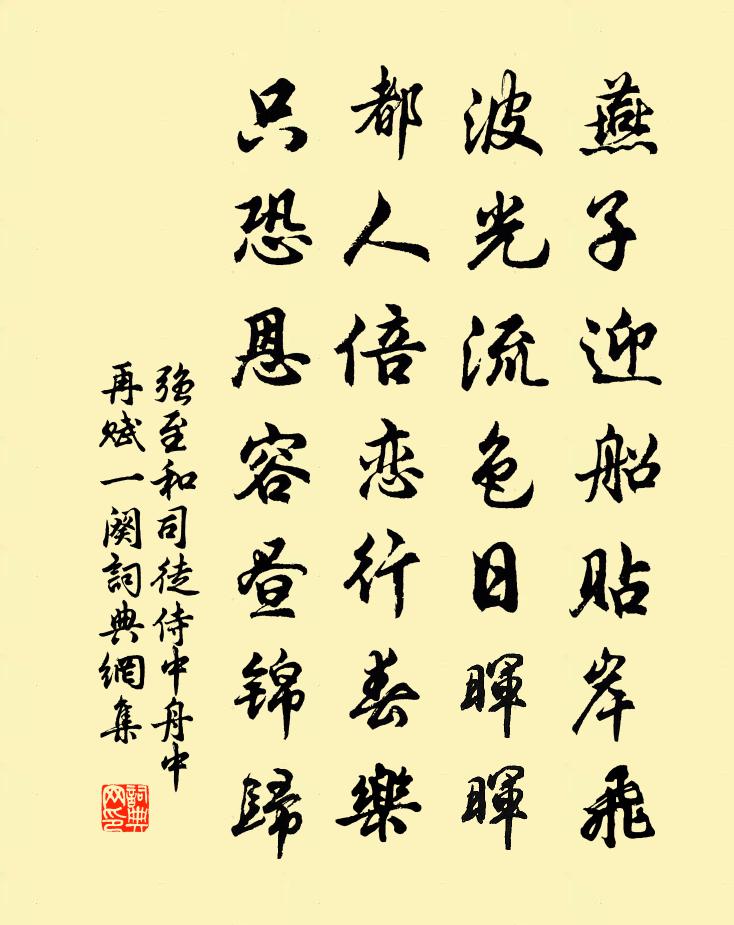 燕子迎船貼岸飛
波光流色日暉暉
都人倍恋行春樂
只恐恩容昼锦歸
強至和司徒侍中舟中
再赋一闋詞典網集
詞典网印